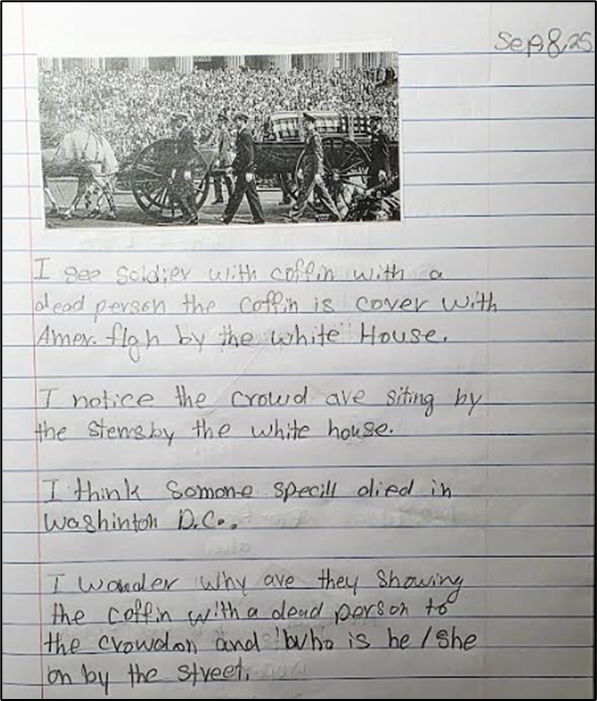 Sep,8,25
I see soldier with coffin with a
dead person the coffin is cover with
Amer. flgh by the white House.
I notice the crowd are siting by
the stems by the white house.
I think Somone specill died in
Washinton D.C..
I wonder why are they showing
the coffin with a dead person to
the crowdon and who is he/she
on by the street.